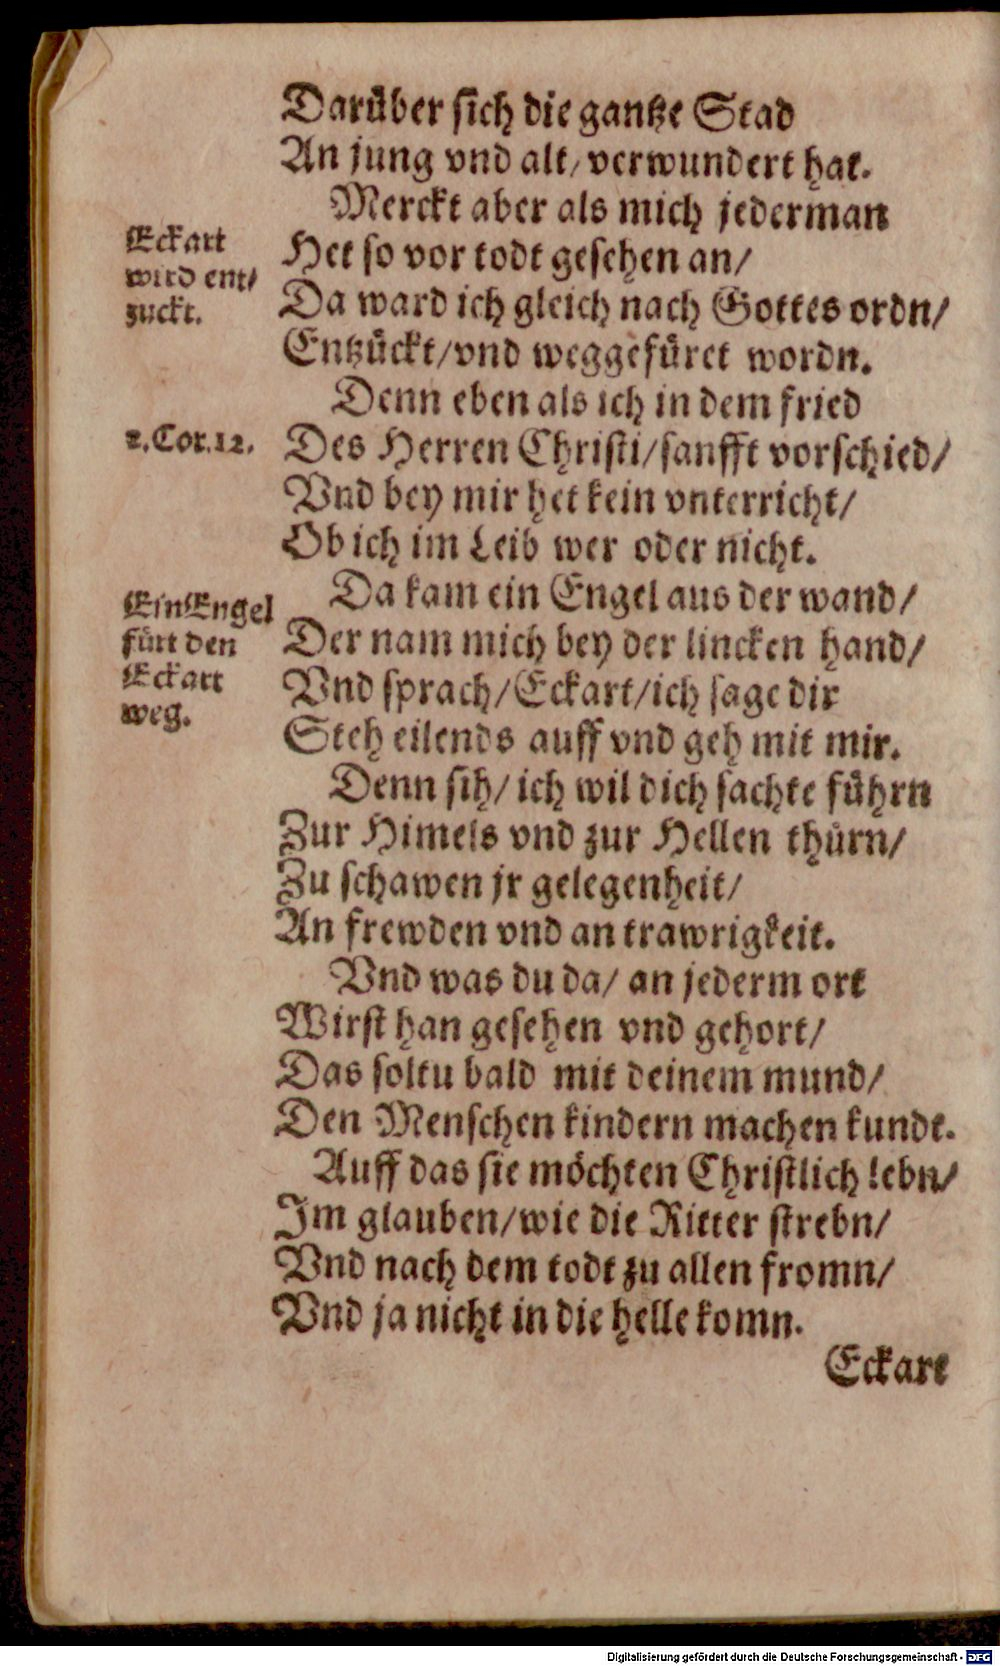 Darüber sich die gantze Stad
An jung vnd alt/ verwundert hat.
Merckt aber als mich jederman
Eckart
wird ent/
zuckt.
Het so vor todt gesehen an/
Da ward ich gleich nach Gottes ordn/
Entzückt/ vnd weggefüret wordn.
Denn eben als ich in dem fried
2. Cor. 12.
Des Herren Christi/ sanfft vorschied/
Vnd bey mir het kein vnterricht/
Ob ich im Leib wer oder nicht.
Ein Engel
fürt den
Eckart
weg.
Da kam ein Engel aus der wand/
Der nam mich bey der lincken hand/
Vnd sprach/ Eckart/ ich sage dir
Steh eilends auff vnd geh mit mir.
Denn sih/ ich wil dich sachte führn
Zur Himels vnd zur Hellen thürn/
Zu schawen jr gelegenheit/
An frewden vnd an trawrigkeit.
Vnd was du da/ an jederm ort
Wirst han gesehen vnd gehort/
Das soltu bald mit deinem mund/
Den Menschen kindern machen kundt.
Auff das sie möchten Christlich lebn/
Im glauben/ wie die Ritter strebn/
Vnd nach dem todt zu allen fromn/
Vnd ja nicht in die helle komn.
Eckart
Digitalisierung gefördert durch die Deutsche Forschungsgemeinschaft - DFG